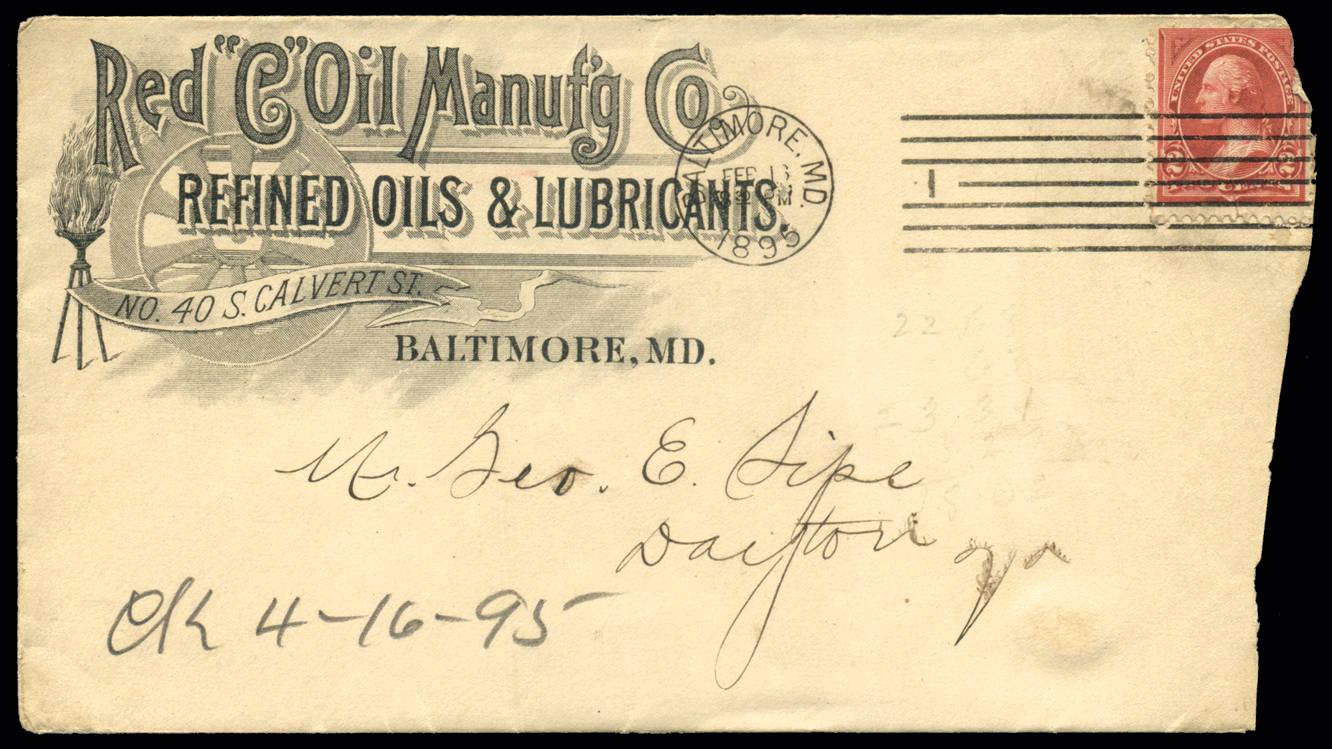 Red "C" Oil Manuf'g Co.
REFINED OILS & LUBRICANTS,
NO. 40 S. CALVERT ST.
BALTIMORE, MD.
BALTIMORE, MD.
FEB 13
M.
1895
1
UNITED STATES POSTAGE
2 2
Mr. Geo. E. Sipe
Dayton
Va
Ok 4-16-95
22
23 31